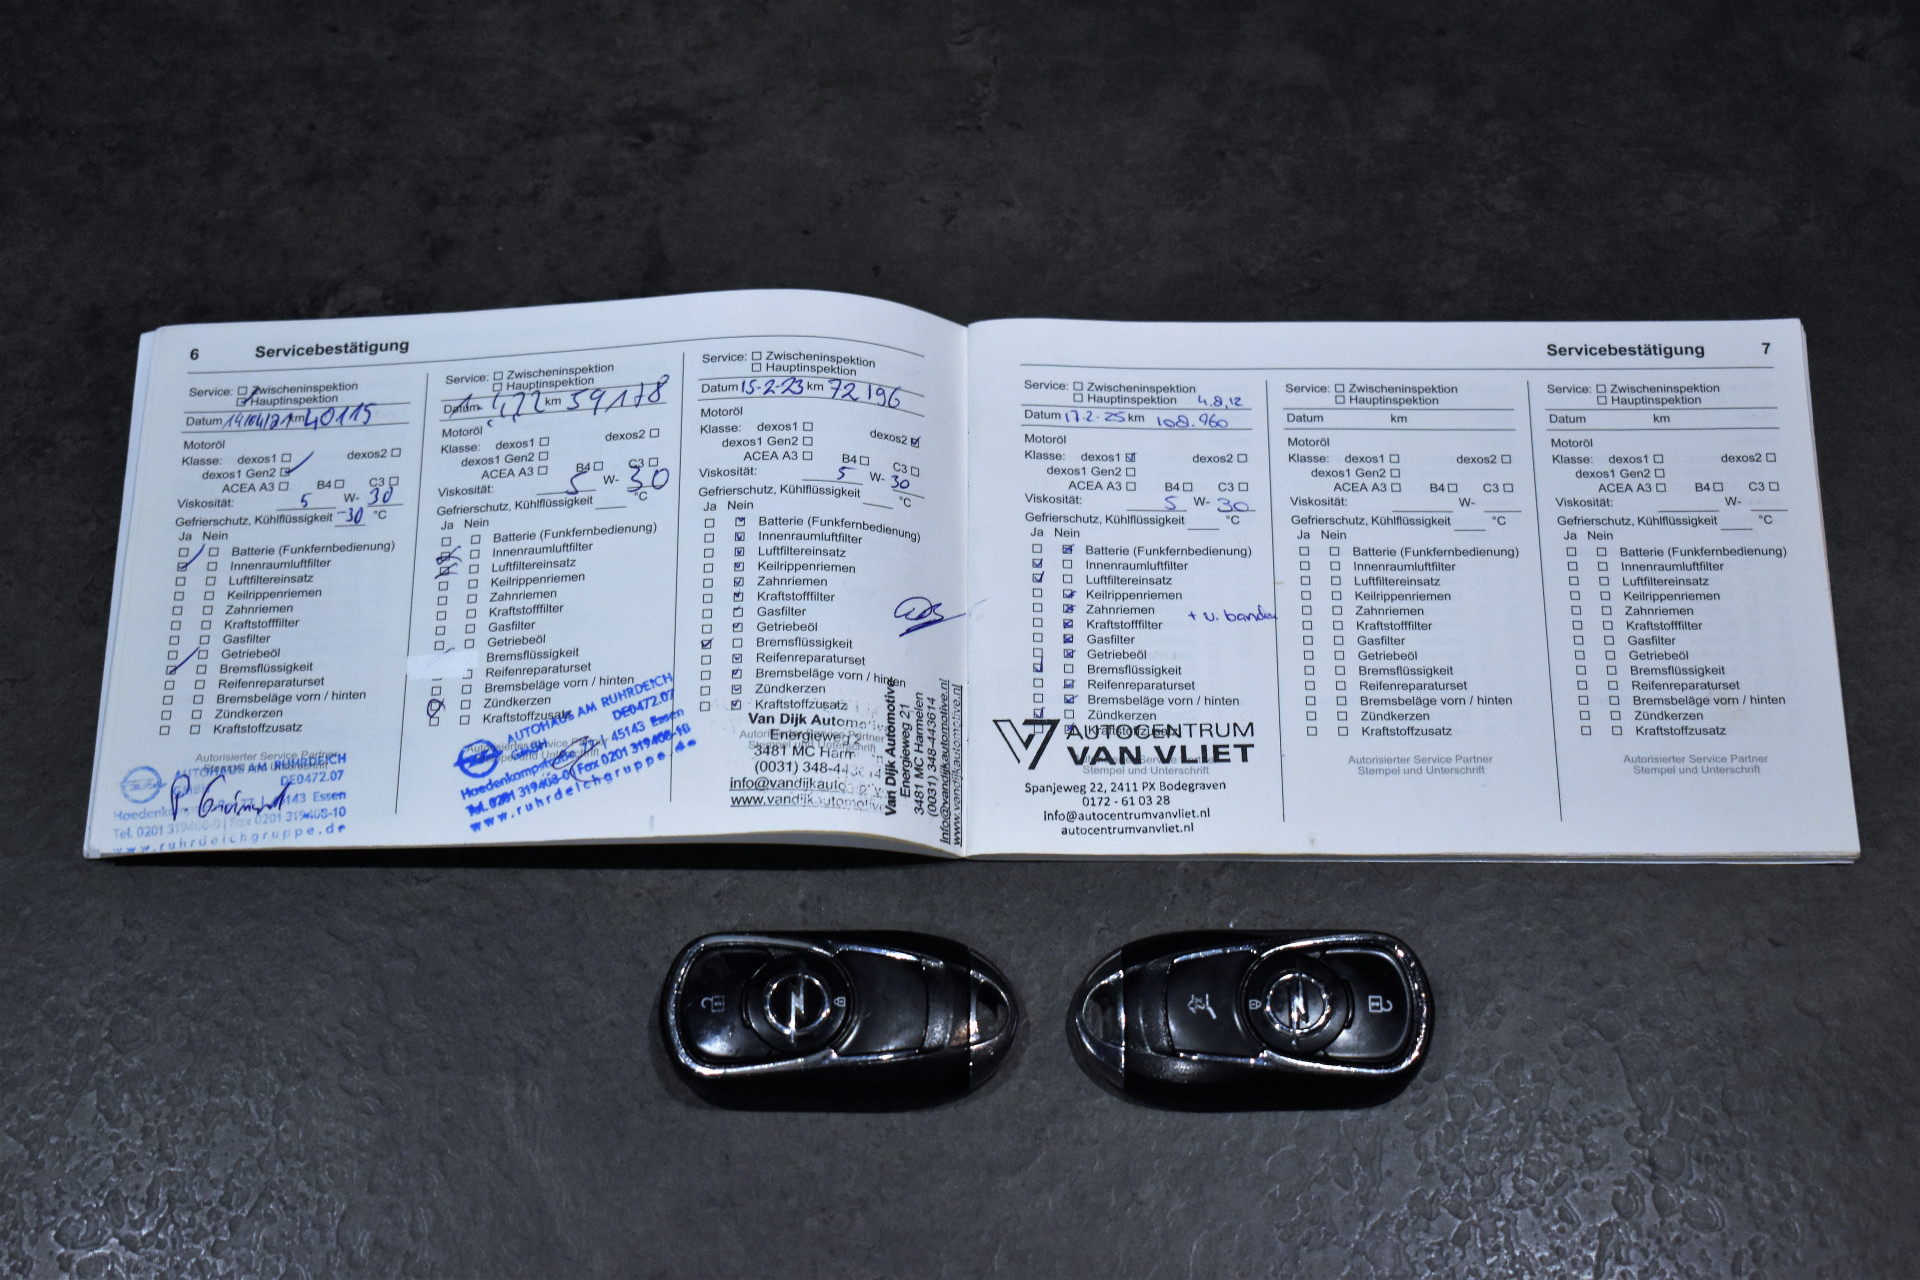 6 Servicebestätigung
Service: Zwischeninspektion
Hauptinspektion
Datum 14/04/21 km 40115
Motoröl
Klasse: dexos1 dexos2
dexos1 Gen2
ACEA A3 B4 C3
Viskosität: 5 W- 30
Gefrierschutz, Kühlflüssigkeit -30 °C
Ja Nein
Batterie (Funkfernbedienung)
Innenraumluftfilter
Luftfiltereinsatz
Keilrippenriemen
Zahnriemen
Kraftstofffilter
Gasfilter
Getriebeöl
Bremsflüssigkeit
Reifenreparaturset
Bremsbeläge vorn / hinten
Zündkerzen
Kraftstoffzusatz
Autorisierter Service Partner
AUTOHAUS AM RUHRDEICH
DE0472.07
GmbH
45143 Essen
Tel. 0201 319408-0 Fax 0201 319408-10
www.ruhrdeichgruppe.de
Service: Zwischeninspektion
Hauptinspektion
Datum km 59178
Motoröl
Klasse: dexos1 dexos2
dexos1 Gen2
ACEA A3 B4 C3
Viskosität: 5 W- 30
Gefrierschutz, Kühlflüssigkeit °C
Ja Nein
Batterie (Funkfernbedienung)
Innenraumluftfilter
Luftfiltereinsatz
Keilrippenriemen
Zahnriemen
Kraftstofffilter
Gasfilter
Getriebeöl
Bremsflüssigkeit
Reifenreparaturset
Bremsbeläge vorn / hinten
Zündkerzen
Kraftstoffzusatz
AUTOHAUS AM RUHRDEICH
GmbH DE0472.07
45143 Essen
Tel. 0201 319408-0 Fax 0201 319408-10
www.ruhrdeichgruppe.de
Service: Zwischeninspektion
Hauptinspektion
Datum 15-2-23 km 72196
Motoröl
Klasse: dexos1
dexos1 Gen2 dexos2
ACEA A3 B4 C3
Viskosität: 5 W- 30
Gefrierschutz, Kühlflüssigkeit °C
Ja Nein
Batterie (Funkfernbedienung)
Innenraumluftfilter
Luftfiltereinsatz
Keilrippenriemen
Zahnriemen
Kraftstofffilter
Gasfilter
Getriebeöl
Bremsflüssigkeit
Reifenreparaturset
Bremsbeläge vorn / hinten
Zündkerzen
Kraftstoffzusatz
Van Dijk Automotive
Energieweg 21
3481 MC Harmelen
(0031) 348-443614
www.vandijkautomotive
Van Dijk Automotive
Energieweg 21
3481 MC Harmelen
(0031) 348-443614
Info@vandijkautomotive.nl
www.vandijkautomotive.nl
Servicebestätigung 7
Service: Zwischeninspektion
Hauptinspektion 4.8.12
Datum 17-2-25 km 108.960
Motoröl
Klasse: dexos1 dexos2
dexos1 Gen2
ACEA A3 B4 C3
Viskosität: 5 W- 30
Gefrierschutz, Kühlflüssigkeit °C
Ja Nein
Batterie (Funkfernbedienung)
Innenraumluftfilter
Luftfiltereinsatz
Keilrippenriemen
Zahnriemen
Kraftstofffilter
Gasfilter
Getriebeöl
Bremsflüssigkeit
Reifenreparaturset
Bremsbeläge vorn / hinten
Zündkerzen
Kraftstoffzusatz
AUTOCENTRUM
VAN VLIET
Stempel und Unterschrift
Spanjeweg 22, 2411 PX Bodegraven
0172 - 61 03 28
Info@autocentrumvanvliet.nl
autocentrumvanvliet.nl
Service: Zwischeninspektion
Hauptinspektion
Datum km
Motoröl
Klasse: dexos1 dexos2
dexos1 Gen2
ACEA A3 B4 C3
Viskosität: W-
Gefrierschutz, Kühlflüssigkeit °C
Ja Nein
Batterie (Funkfernbedienung)
Innenraumluftfilter
Luftfiltereinsatz
Keilrippenriemen
Zahnriemen
Kraftstofffilter
Gasfilter
Getriebeöl
Bremsflüssigkeit
Reifenreparaturset
Bremsbeläge vorn / hinten
Zündkerzen
Kraftstoffzusatz
Autorisierter Service Partner
Stempel und Unterschrift
Service: Zwischeninspektion
Hauptinspektion
Datum km
Motoröl
Klasse: dexos1 dexos2
dexos1 Gen2
ACEA A3 B4 C3
Viskosität: W-
Gefrierschutz, Kühlflüssigkeit °C
Ja Nein
Batterie (Funkfernbedienung)
Innenraumluftfilter
Luftfiltereinsatz
Keilrippenriemen
Zahnriemen
Kraftstofffilter
Gasfilter
Getriebeöl
Bremsflüssigkeit
Reifenreparaturset
Bremsbeläge vorn / hinten
Zündkerzen
Kraftstoffzusatz
Autorisierter Service Partner
Stempel und Unterschrift